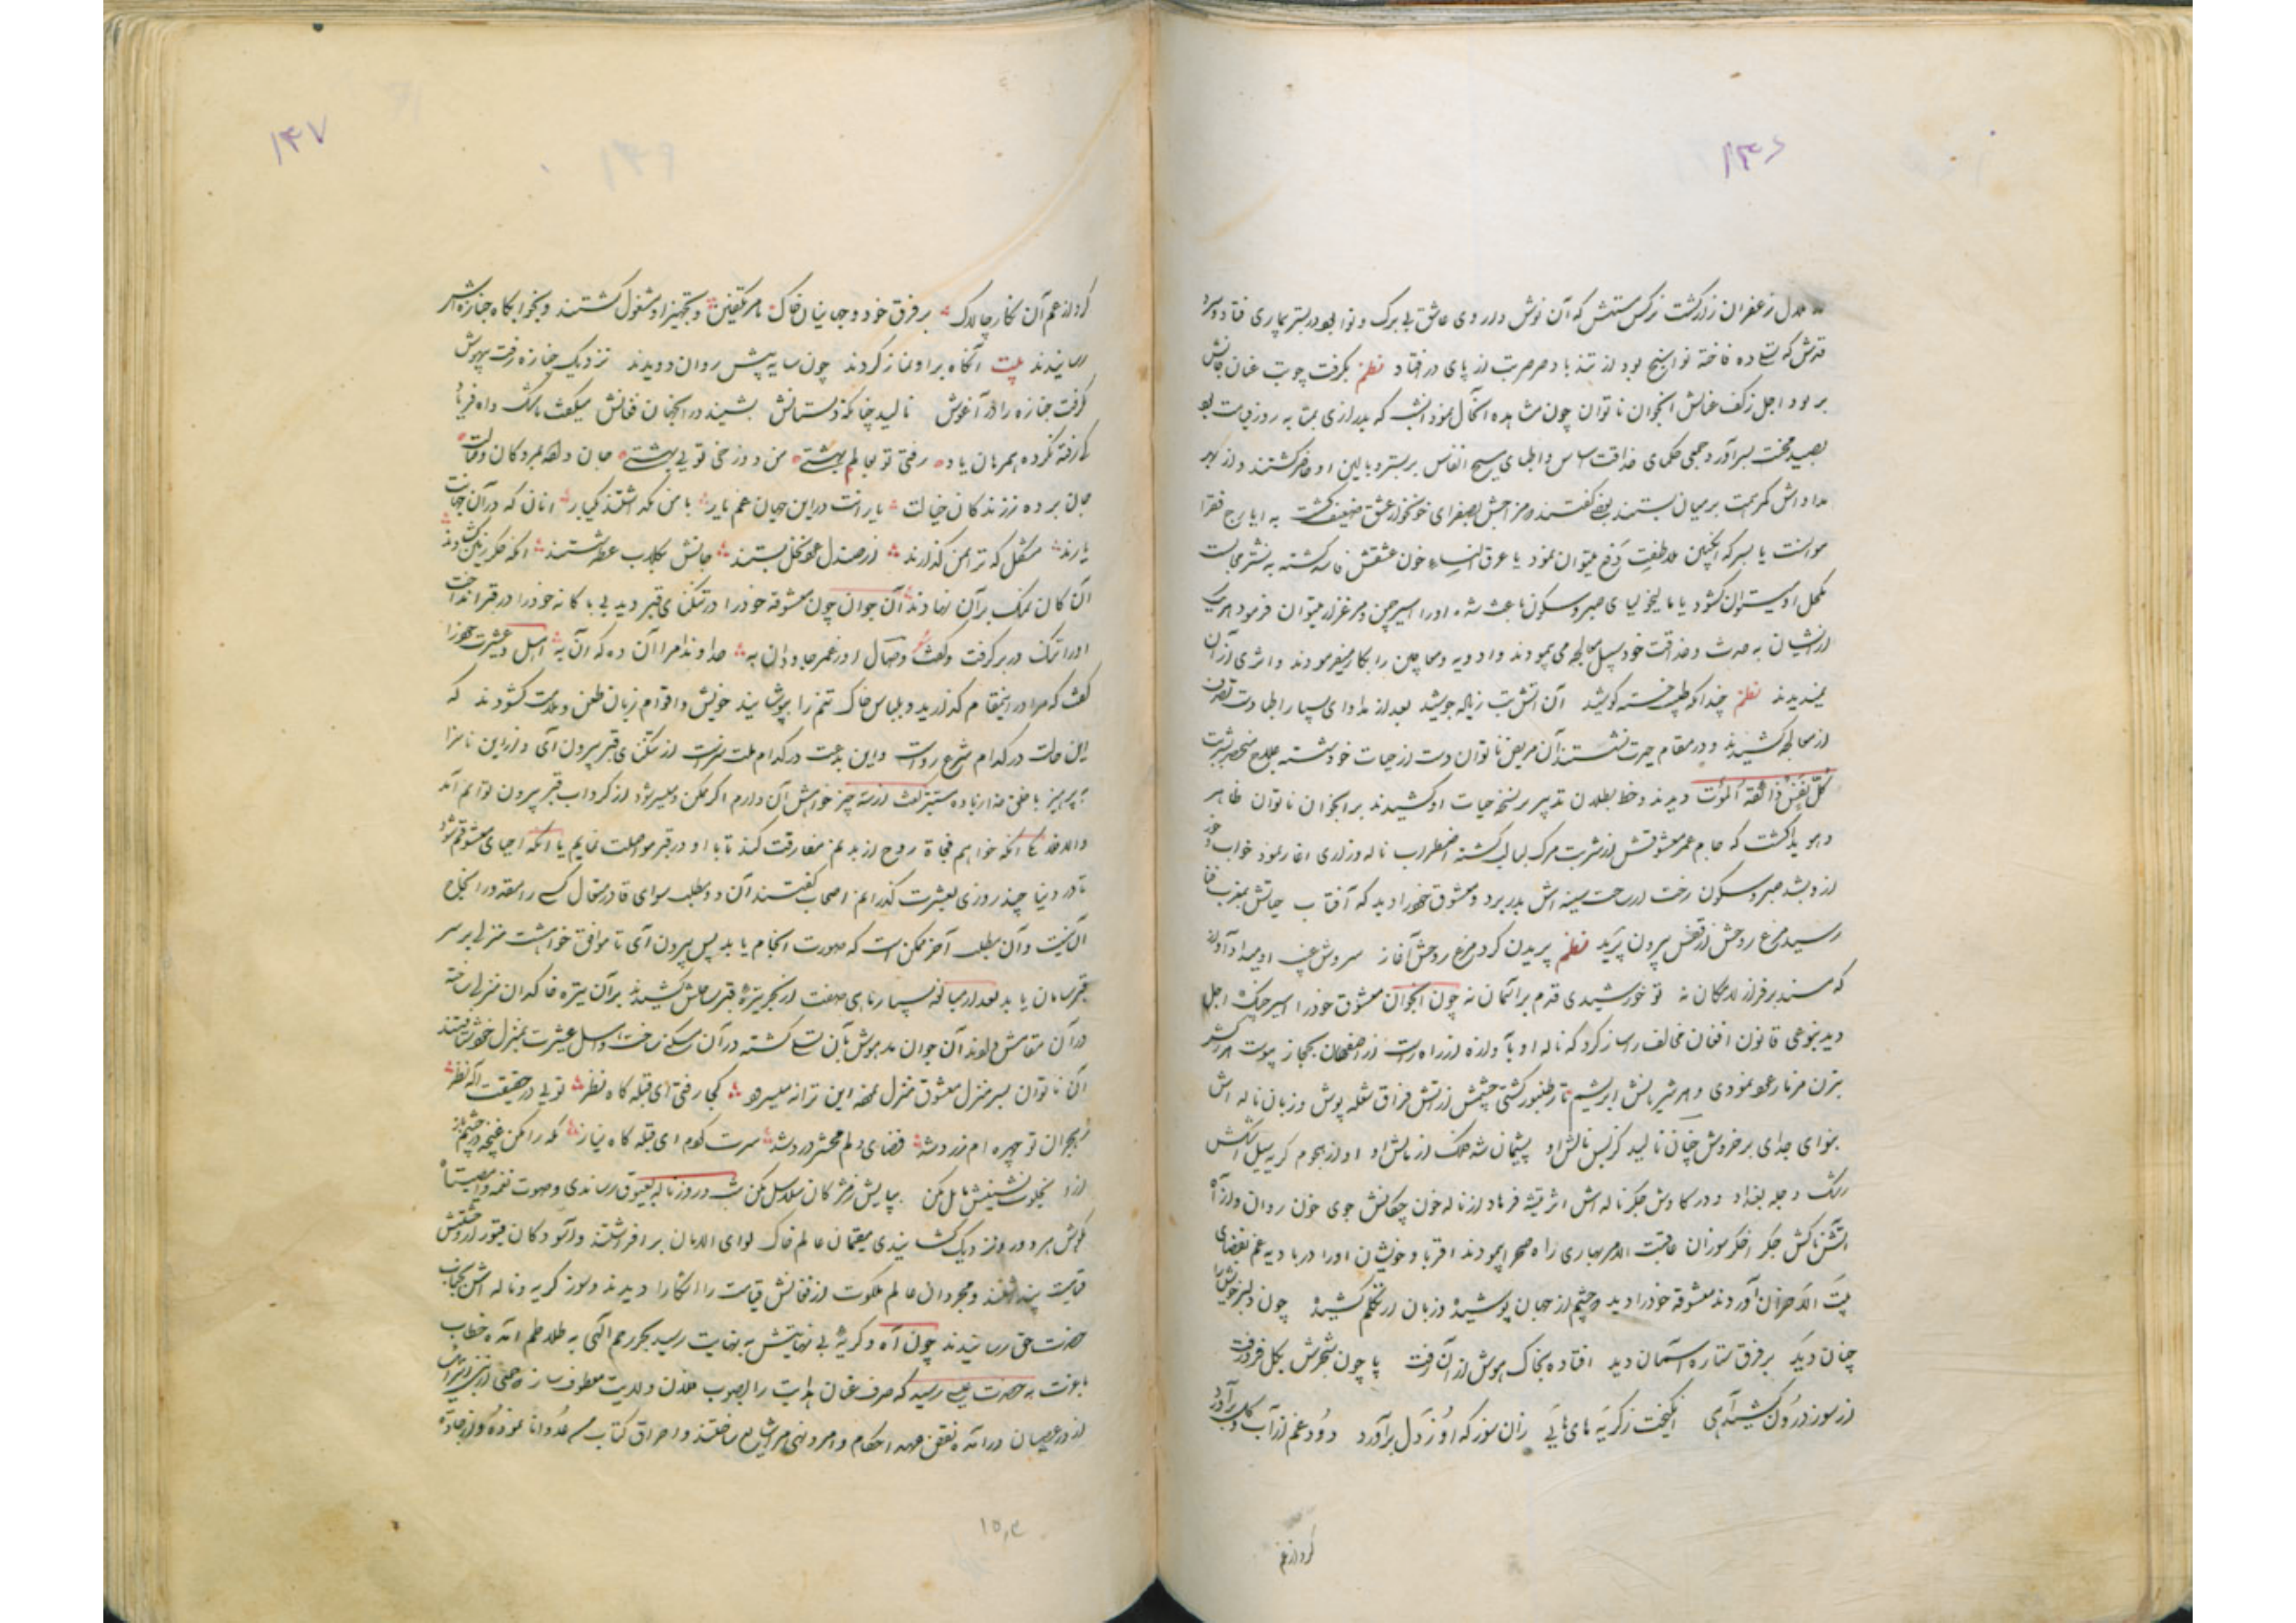 ۱۴۶
زعفران زار گشت نرکس مستش که آن نوش داروی عاشق بی برک و نوا بود در بستر بیماری فتاد و سرو
قدش که فاخته نواسنج بود از تند باد صرصر تب از پای در افتاد نظم بگرفت چو تب عنان جانش
بربود اجل ز کف عنانش انجوان ناتوان چون مشاهده انحال نمود انشب که بدرازی به روز قیامت بود
بصد محنت بسر آورد و جمعی حکمای حذاقت اساس و اطبای مسیح انفاس بر بستر و بالین او حاضر کشتند و از بهر
مداواش کمر همت بر میان بستند بعضی گفتند مزاجش بصفرای خونخوار عشق ضعیف گشته به ایارج فقرا
موانست یا بسرکه انکبین ملاطفت دفع میتوان نمود یا عرق النساء خون عشقش فاسد گشته به نشتر مجالست
اکحل او میتوان کشود یا مالیخولیای صبر و سکون باعث شده او را اسیر چمن و مرغزار میتوان فرمود هر یک
از ایشان به حدث و حذاقت خود سبیل معالجه می پیمودند و ادویه و معاجین را بکار میفرمودند و اثری از آن
نمیدیدند نظم چندانکه طبیب خسته کوشید آن اتش تب زیاده جوشید بعد از مداوای بسیار اطبا دست تصرف
از معالجه کشیدند و در مقام حیرت نشستند آن مریض ناتوان دست از حیات خود شسته علاج منحصر بشربت
کل نفس ذائقة الموت دیدند و خط بطلان تدبیر بر نسخه حیات او کشیدند بر انجوان ناتوان ظاهر
و هویدا کشت که جام عمر معشوقش از شربت مرک لبالب کشته اضطراب ناله و زاری اغاز نمود خواب و خور
از و بشد صبر و سکون رخت از ساحت سینه اش بدر برد و معشوق خود را دید که آفتاب حیاتش بمغرب فنا
رسید مرغ روحش از قفس بیرون پرید نظم پریدن کرد مرغ روحش آغاز سروش غیب او میداد آواز
که مسند بر فراز لامکان نه تو خورشیدی قدم بر آسمان نه چون انجوان معشوق خود را اسیر چنک اجل
دید بنوعی قانون افغان مخالف ساز کرد که ناله او با آوازه از راه راست از اصفهان بحجاز پیوست هر کشر
بزن مزمار عود نمودی و هر شریانش ابریشم تار طنبور کشتی چشمش از اتش فراق شعله پوش و زبان ناله اش
بنوای جدای بر خروش چنان نالید کز بس نالش او پشیمان شد فلک از مالش او او از هجوم کریه سیل اشکش
رشک دجله بغداد و در کاوش جکر ناله اش اثر تیشه فرهاد از ناله خون چکانش جوی خون روان و از آه
اتشناکش جکر اخکر سوزان عاقبت الامر بهاری راه صحرا پیمودند اقربا و خویشان او را در بادیه غم بفضای
بیت الاحزان آوردند معشوقه خود را دید چشم از جهان پوشیده و زبان از تکلم کشیده چون دلبر خویش را
چنان دید بر فرق ستاره آسمان دید افتاده بخاک هوش از آن رفت پا چون شجرش بکل فرو رفت
از سوز درون کشید آهی انگیخت ز گریه های هایی زان سوز که او ز دل برآورد دود غم از آب و کل برآورد
کرد از غم
۱۴۷
کرد از غم آن نکار چالاک بر فرق خود و جهانیان خاک بامر تکفین و تجهیز او مشغول گشتند و بخوابکاه جنازه اش
رسانیدند بیت آنکاه بر او نماز کردند چون سایه پیش روان دویدند نزدیک جنازه رفت بیهوش
گرفت جنازه را در آغوش نالید چنانکه دلستانش بشنید در انجهان فغانش میکفت باشک و اه فریاد
کارفته نکرده همرهان یاد رفتی تو بعالم بهشتی من دوزخی تو بی بهشتی جان داده بمردکان وصالت
جان برده ز زندکان خیالت یارانت در این جهان غم یار با من نکذاشتند یکبار انان که در آن جهانت
یارند مشکل که ترا بمن گذارند از صندل عود نخل بستند جانش بکلاب عطر شستند انکه جکر زمین کشودند
آن کان نمک بر آن نهادند آن جوان چون معشوقه خود را در تنکنای قبر دید بی باکانه خود را در قبر انداخت
او را تنک در بر گرفت و گفت وصال او ز عمر جاودان به خداوندا مرا آن ده که آن به اهل عشیرت خود را
گفت که مرا در اینمقام گذارید و بلباس خاک تنم را بپوشانید خویش و اقوام زبان طعن و ملامت کشودند که
این حالت در کدام شرع رواست و این بدعت در کدام ملت سزاست از تنکنای قبر بیرون آی و از این ناسزا
بپرهیز با خلق خدا زیاده مستیز گفت از سه چیز خواهش آن دارم اگر ممکن و میسر شود از گرداب قبر بیرون توانم آمد
والا فلا انکه خواهم فجاة روح از بدنم مفارقت کند تا با او در قبر مواصلت نمایم یا انکه احیای معشوقم شود
تا در دنیا چند روزی بعشرت گذرانم اصحاب گفتند آن دو مطلب سوای قادر متعال کسی را مقدور انجاح
آن نیست و آن مطلب آخر ممکن است که صورت انجام یابد پس بیرون آی تا موافق خواهشت منزلی بر سر
قبر سامان یابد بعد از مبالغه بسیار ناهی صفت از بحر تیره قبر بساحلش کشیدند بر آن تیره خاکدان منزلی ساخته
در آن مقامش دادند آن جوان مدهوش بآن تسلی گشته در آن مسکن ساخت و اهل عشیرت بمنزل خود شتافتند
آن ناتوان بسر منزل معشوق منزل نموده این ترانه میسرود کجا رفتی ای قبله کاه نظر تویی در حقیقت اله نظر
ز هجران تو چهره ام زرد شد فضای دلم محشر درد شد سرت گردم ای قبله کاه نیاز که را مکن غنچه چشم باز
بخلوت نشینش مایل مکن بپایش ز مژکان سلاسل مکن شب و روز ناله بعیوق رساندی و صوت نغمه وا مصیبتاه
بکوش هر دور و نزدیک کشانیدی مقیمان عالم خاک لوای الامان بر افراشتند و آسودکان قبور از خروشش
قیامت پنداشتند و مجردان عالم ملکوت از فغانش قیامت را اشکارا دیدند و سوز گریه و ناله اش بجناب
حضرت حق رسانیدند چون آه و گریه بی نهایتش به نهایت رسید بحر رحم الهی به تلاطم امده خطاب
باعزت به حضرت عیسی رسید که صرف عنان هدایت را بصوب فلان ولایت معطوف ساز که جمعی
از در عصیان درامده نقض عهد احکام و امر و نهی مرا شایع ساختند و احراق کتاب